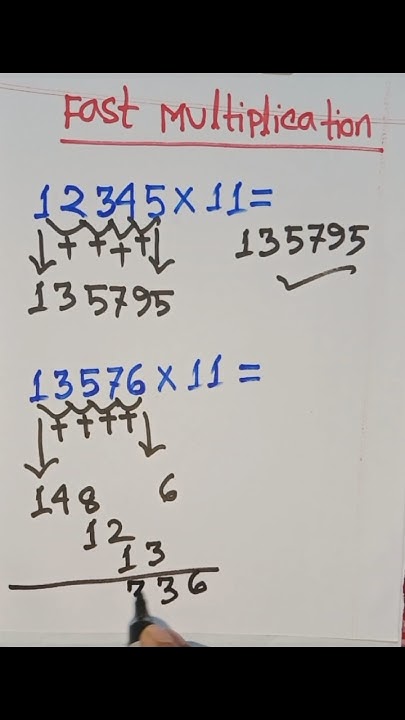 Fast Multiplication
12345 × 11 =
+ + + +
135795
135795
13576 × 11 =
+ + + +
148 6
12
13
336